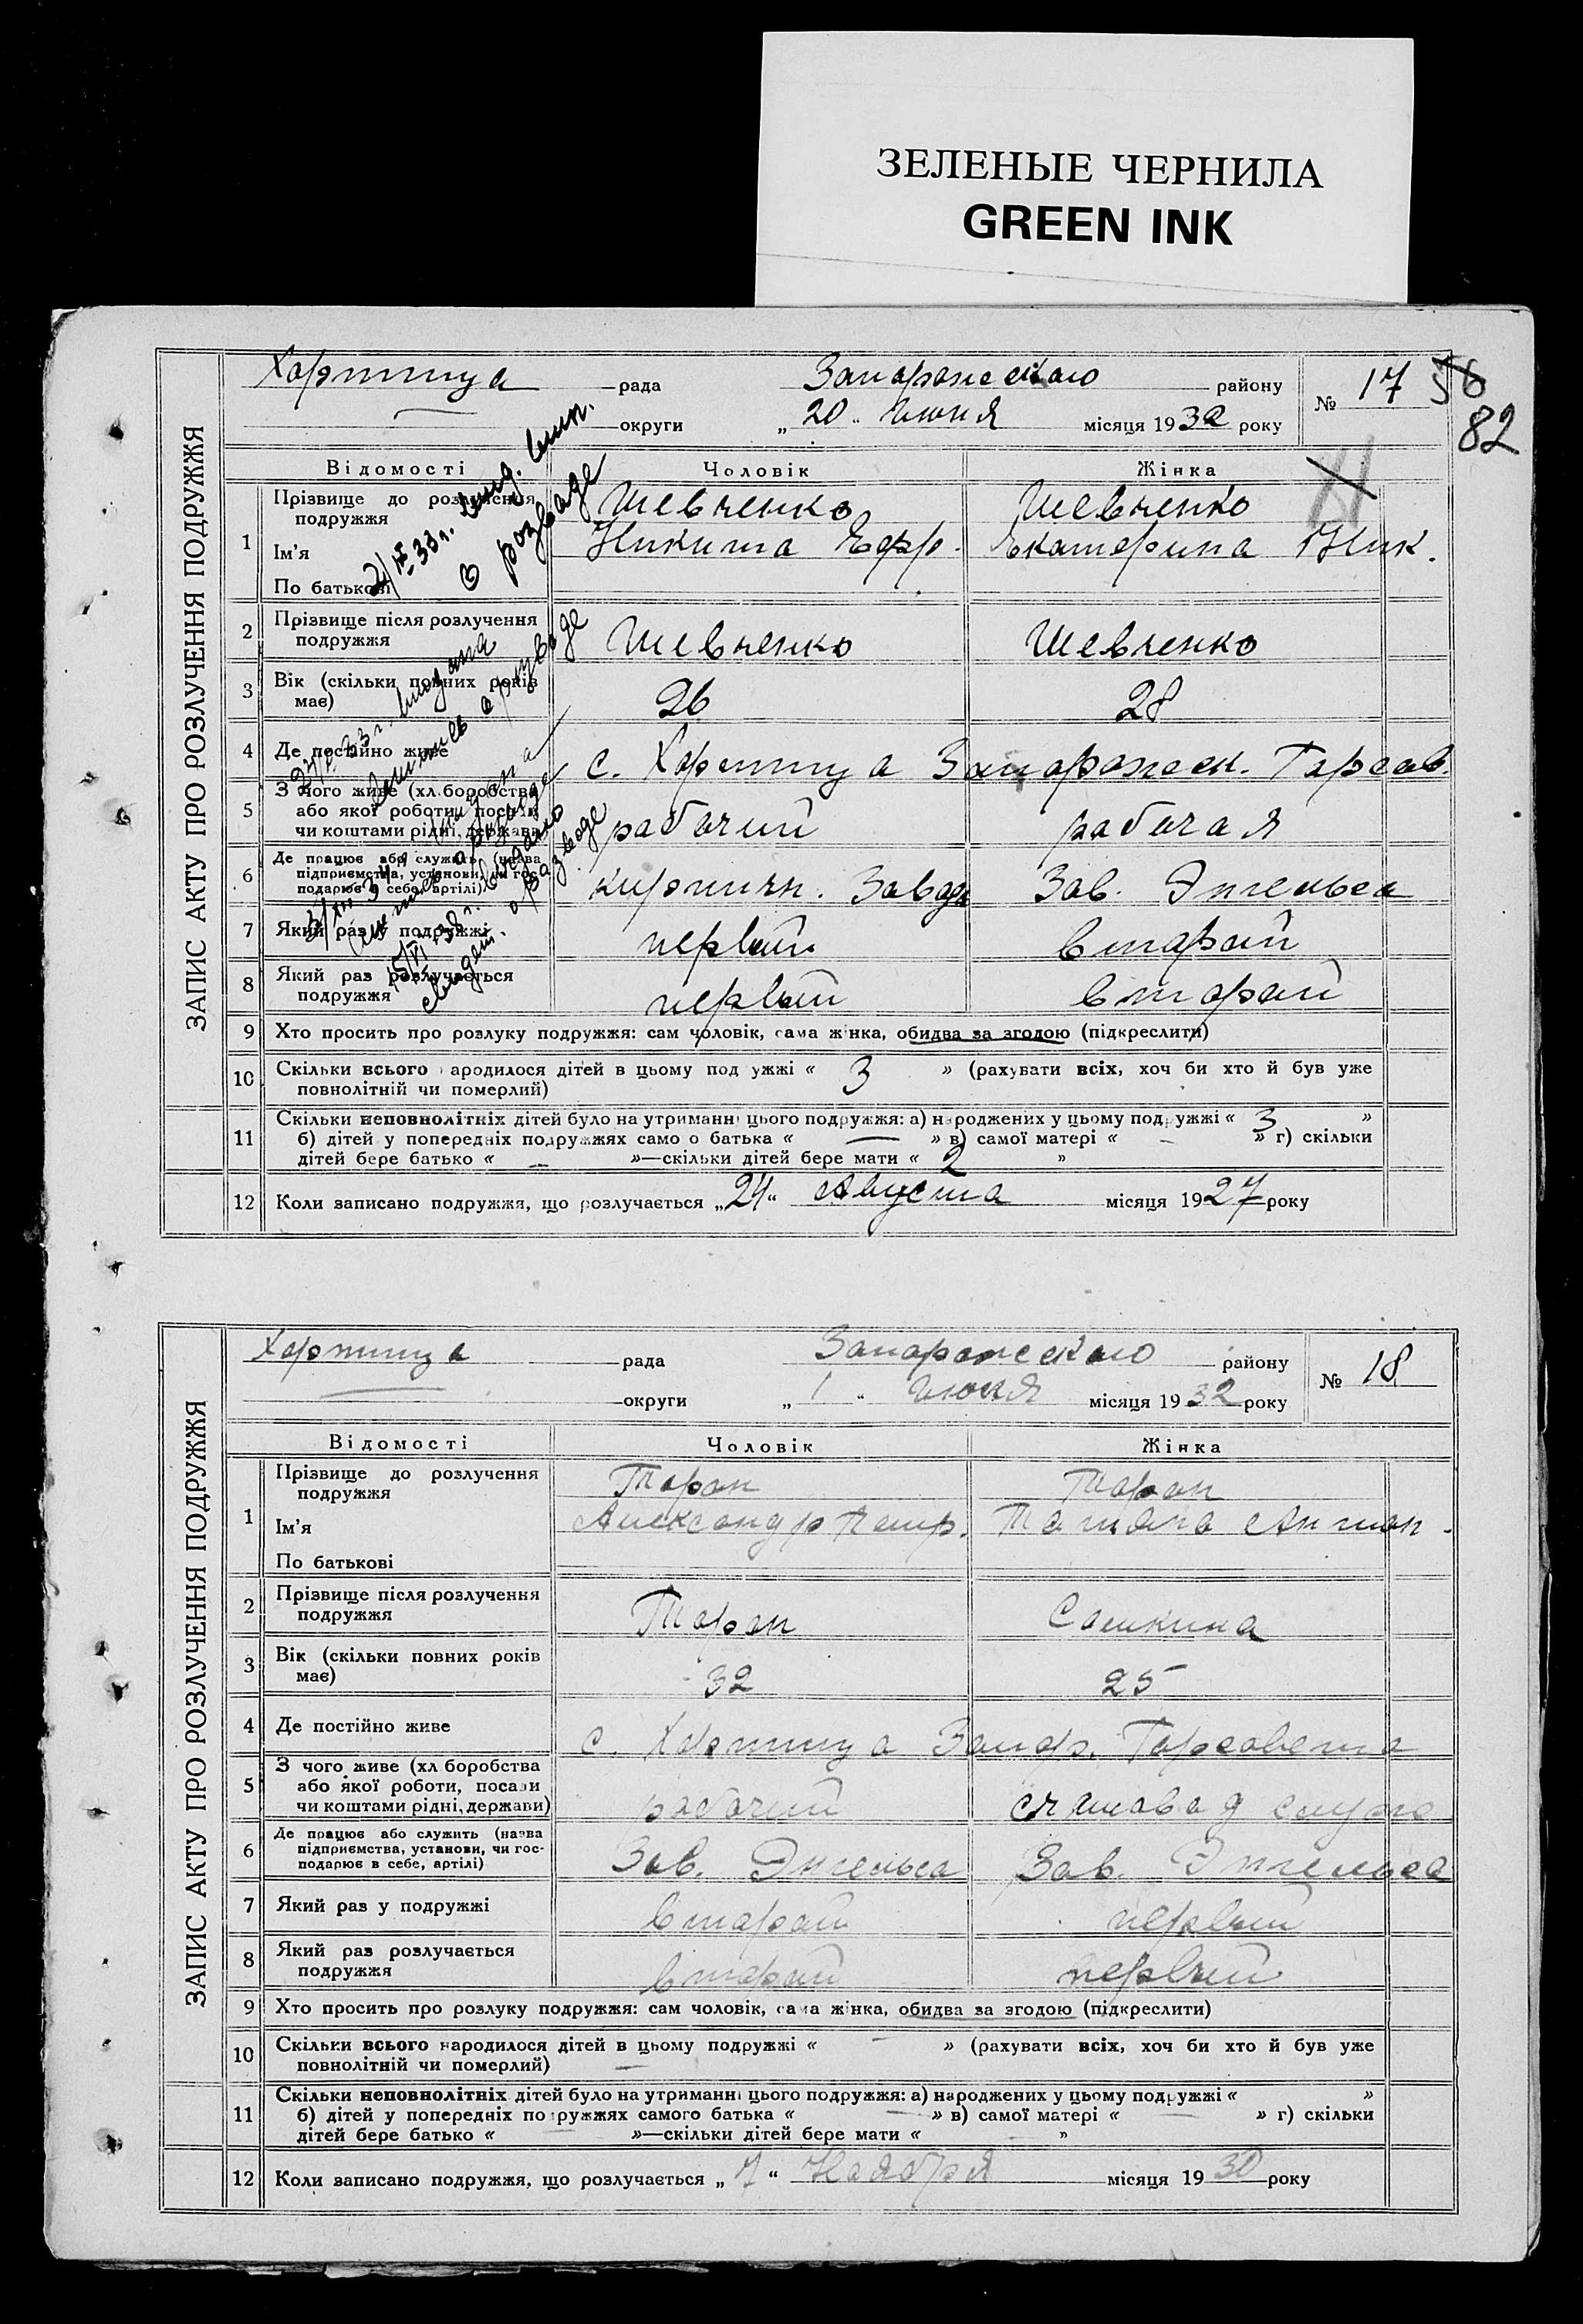 ЗЕЛЕНЫЕ ЧЕРНИЛА
GREEN INK
ЗАПИС АКТУ ПРО РОЗЛУЧЕННЯ ПОДРУЖЖЯ
Хортица рада Запорожского району № 17 56
82
округи „ 20 " июня місяця 1932 року
Відомості Чоловік Жінка
1 Прізвище до розлучення Шевченко Шевченко
подружжя
Ім'я Никита Ефр. Екатерина Ник.
По батькові
2 Прізвище після розлучення
подружжя Шевченко Шевченко
3 Вік (скільки повних років
має) 26 28
4 Де постійно живе с. Хортица Запорожск. Горсов.
5 З чого живе (хл.боробства
або якої роботи, посади рабочий рабочая
чи коштами рідні, держави)
6 Де працює або служить (назва
підприємства, установи, чи гос-
подарює в себе, артілі) кирпичн. Завода Зав. Энгельса
7 Який раз у подружжі первый втарой
8 Який раз розлучається
подружжя первый втарой
9 Хто просить про розлуку подружжя: сам чоловік, сама жінка, обидва за згодою (підкреслити)
10 Скільки всього народилося дітей в цьому подружжі « 3 » (рахувати всіх, хоч би хто й був уже
повнолітній чи померлий)
11 Скільки неповнолітніх дітей було на утриманні цього подружжя: а) народжених у цьому подружжі « 3 »
б) дітей у попередніх подружжях самого батька « — » в) самої матері « - » г) скільки
дітей бере батько « — »—скільки дітей бере мати « 2 »
12 Коли записано подружжя, що розлучається „24" Августа місяця 1927 року
2/IX 33 г. выд. вып.
о розваде
выдана
о розводе
выдано
свидет. о разводе
ЗАПИС АКТУ ПРО РОЗЛУЧЕННЯ ПОДРУЖЖЯ
Хортица рада Запорожского району № 18
округи „ 1 " июня місяця 1932 року
Відомості Чоловік Жінка
1 Прізвище до розлучення Таран Таран
подружжя
Ім'я Александр Петр. Татяна Антон.
По батькові
2 Прізвище після розлучення
подружжя Таран Сашкина
3 Вік (скільки повних років
має) 32 25
4 Де постійно живе с. Хортица Запор. Горсовета
5 З чого живе (хл боробства
або якої роботи, посади
чи коштами рідні, держави) рабочий счетовод
6 Де працює або служить (назва
підприємства, установи, чи гос-
подарює в себе, артілі) Зав. Энгельса Зав. Энгельса
7 Який раз у подружжі втарой первый
8 Який раз розлучається
подружжя втарой первый
9 Хто просить про розлуку подружжя: сам чоловік, сама жінка, обидва за згодою (підкреслити)
10 Скільки всього народилося дітей в цьому подружжі « — » (рахувати всіх, хоч би хто й був уже
повнолітній чи померлий)
11 Скільки неповнолітніх дітей було на утриманні цього подружжя: а) народжених у цьому подружжі « »
б) дітей у попередніх подружжях самого батька « — » в) самої матері « — » г) скільки
дітей бере батько « — »—скільки дітей бере мати « — »
12 Коли записано подружжя, що розлучається „ 7 " Наября місяця 1930 року